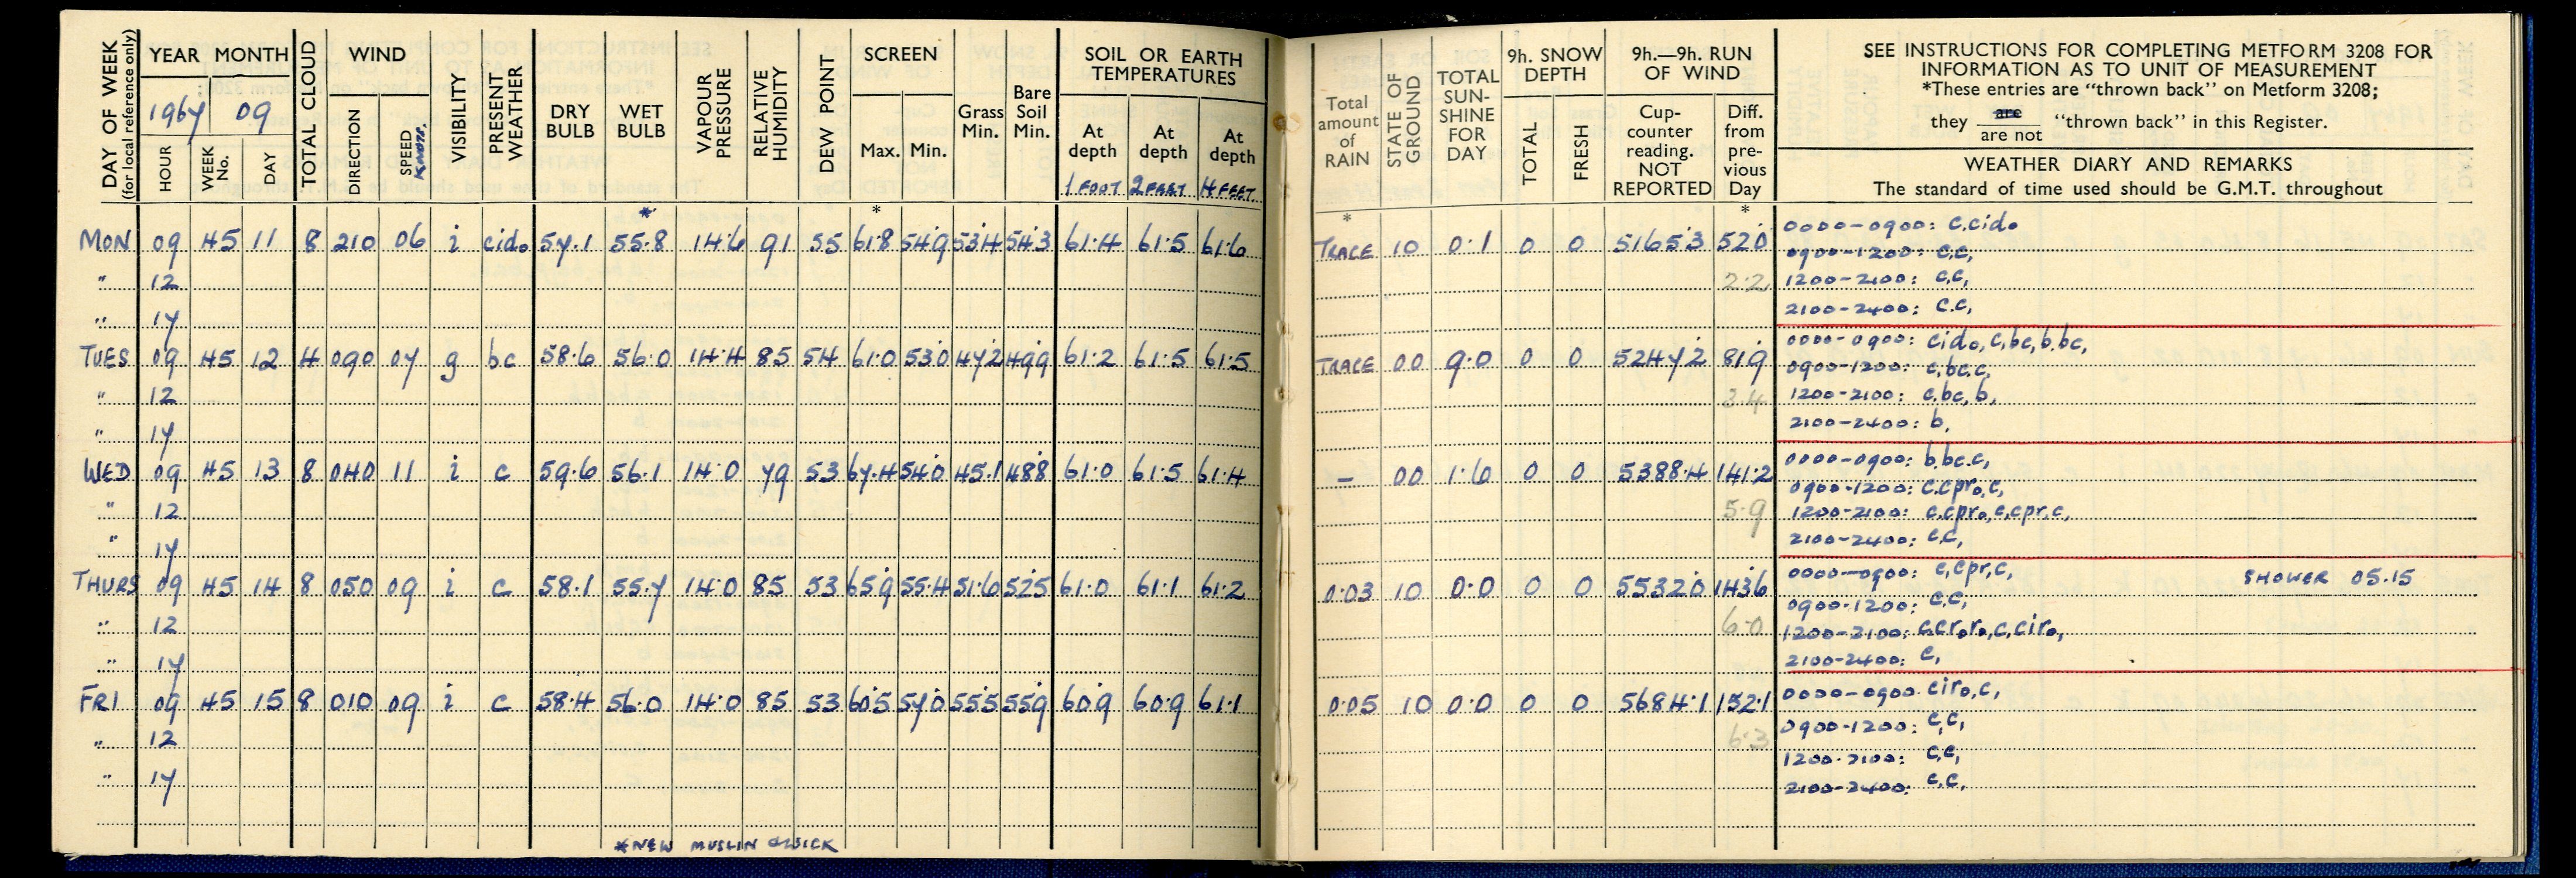 DAY OF WEEK (for local reference only)
YEAR MONTH
1967 09
HOUR WEEK No. DAY
TOTAL CLOUD
WIND
DIRECTION SPEED KNOTS.
VISIBILITY
PRESENT WEATHER
DRY BULB
WET BULB
VAPOUR PRESSURE
RELATIVE HUMIDITY
DEW POINT
SCREEN
Max. Min.
Grass Min.
Bare Soil Min.
SOIL OR EARTH TEMPERATURES
At depth 1 FOOT
At depth 2 FEET
At depth 4 FEET
Total amount of RAIN
STATE OF GROUND
TOTAL SUN-SHINE FOR DAY
9h. SNOW DEPTH
TOTAL FRESH
9h.—9h. RUN OF WIND
Cup-counter reading. NOT REPORTED
Diff. from pre-vious Day
SEE INSTRUCTIONS FOR COMPLETING METFORM 3208 FOR
INFORMATION AS TO UNIT OF MEASUREMENT
*These entries are "thrown back" on Metform 3208;
they are / are not "thrown back" in this Register.
WEATHER DIARY AND REMARKS
The standard of time used should be G.M.T. throughout
* * * *
MON 09 45 11 8 210 06 i cido 57.1 55.8 14.6 91 55 61.8 54.9 53.4 54.3 61.4 61.5 61.6 TRACE 10 0.1 0 0 5165.3 52.0 0000-0900: c,cido
0900-1200: c,c,
" 12 2.2 1200-2100: c,c,
" 17 2100-2400: c.c,
TUES 09 45 12 4 090 07 g bc 58.6 56.0 14.4 85 54 61.0 53.0 47.2 49.9 61.2 61.5 61.5 TRACE 00 9.0 0 0 5247.2 81.9 0000-0900: cido, c,bc,b.bc,
0900-1200: c,bc.c,
" 12 3.4 1200-2100: c,bc,b,
" 17 2100-2400: b,
WED 09 45 13 8 040 11 i c 59.6 56.1 14.0 79 53 67.4 54.0 45.1 48.8 61.0 61.5 61.4 — 00 1.6 0 0 5388.4 141.2 0000-0900: b,bc.c,
0900-1200: c.cpro,c,
" 12 5.9 1200-2100: c.cpro,c,cpr,c,
" 17 2100-2400: c.c,
THURS 09 45 14 8 050 09 i c 58.1 55.7 14.0 85 53 65.9 55.4 51.6 52.5 61.0 61.1 61.2 0.03 10 0.0 0 0 5532.0 143.6 0000-0900: c,cpr,c, SHOWER 05.15
0900-1200: c.c,
" 12 6.0 1200-2100: c,cr,ro,c,ciro,
" 17 2100-2400: c,
FRI 09 45 15 8 010 09 i c 58.4 56.0 14.0 85 53 60.5 57.0 55.5 55.9 60.9 60.9 61.1 0.05 10 0.0 0 0 5684.1 152.1 0000-0900 ciro,c,
" 12 6.3 0900-1200: c,c,
1200-2100: c,c,
" 17 2100-2400: c.c,
*NEW MUSLIN & WICK